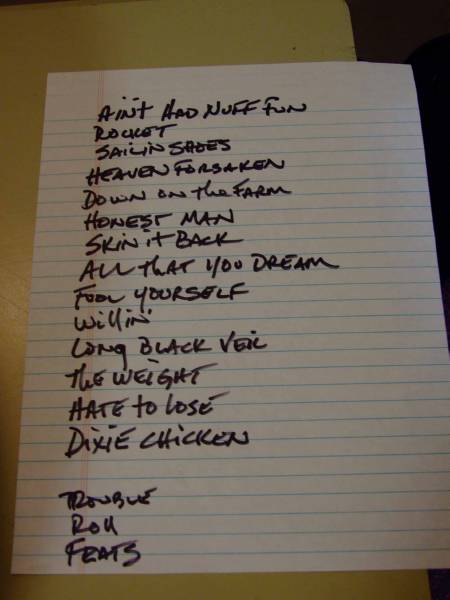 AIN'T HAD NUFF FUN
ROCKET
SAILIN SHOES
HEAVEN FORSAKEN
DOWN ON the FARM
HONEST MAN
SKIN it BACK
ALL that you DREAM
FOOL YOURSELF
Willin'
LONG BLACK VEIL
the WEIGHT
HATE to LOSE
DIXIE CHICKEN
TROUBLE
Roll
FEATS